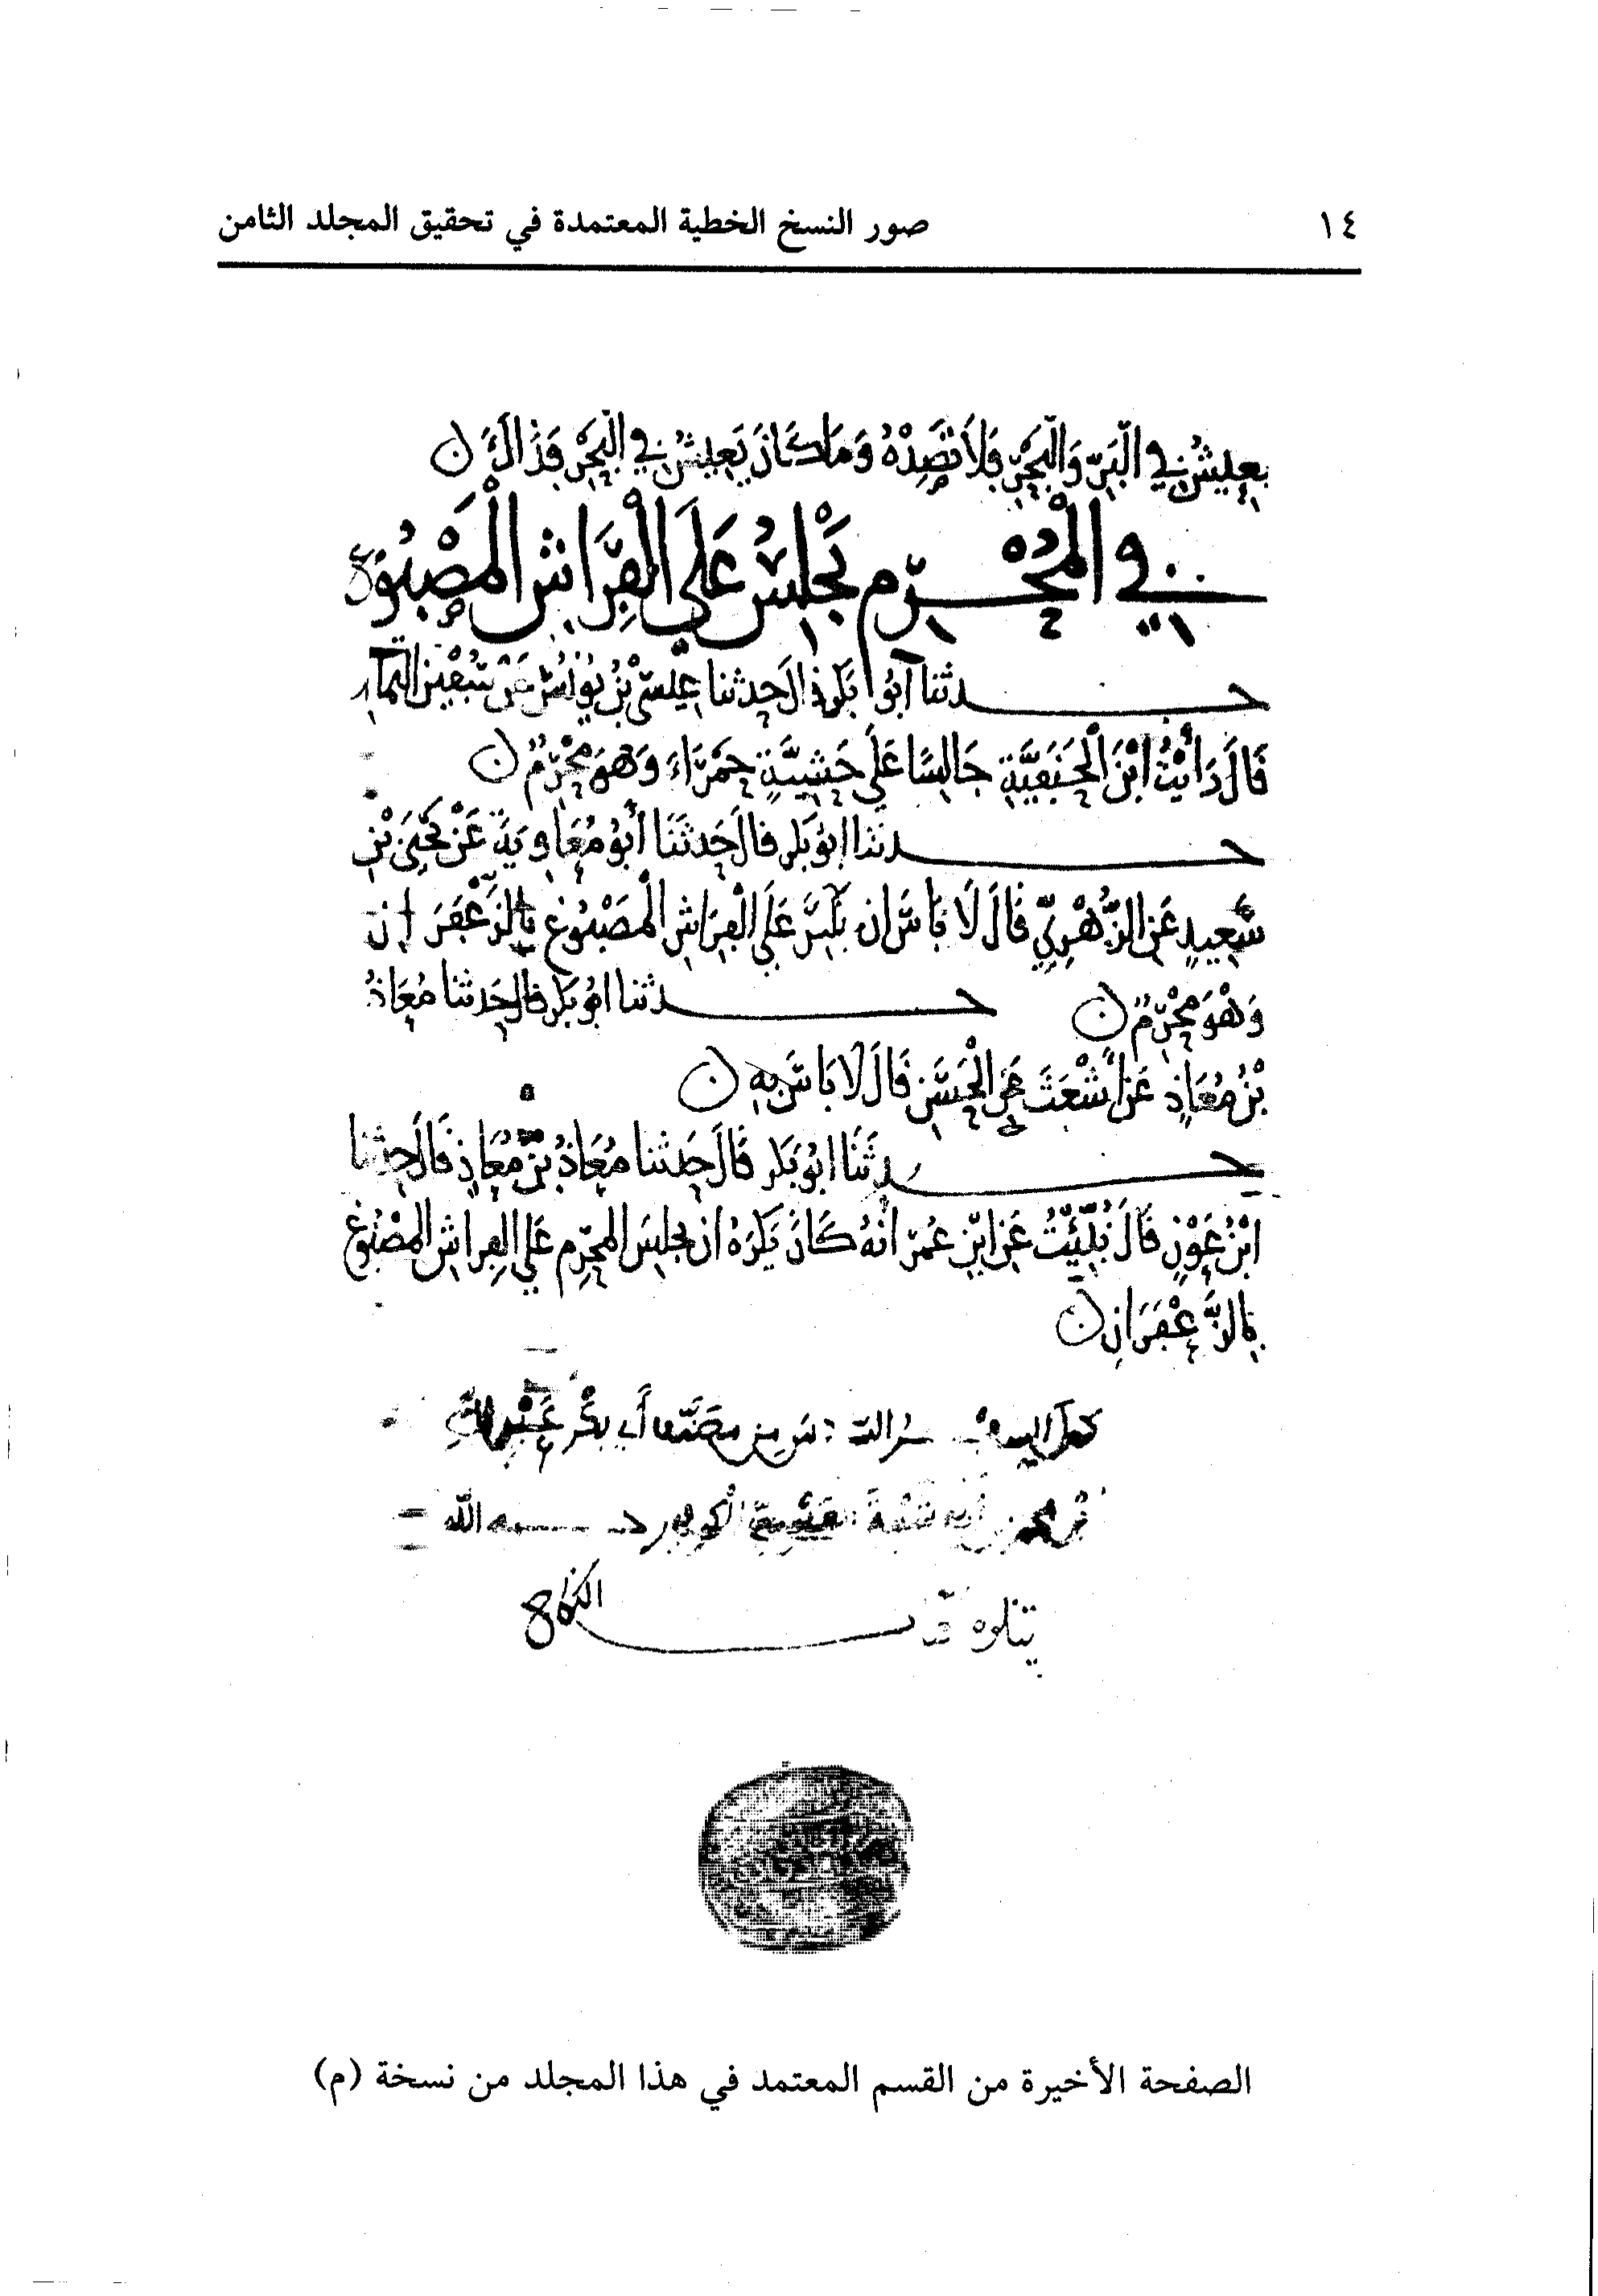 ١٤ صور النسخ الخطية المعتمدة في تحقيق المجلد الثامن
يعيش في البَرّ وَالبَحْرِ فَلاَ تَصِدْهُ وَمَا كَانَ يَعِيشُ في البَحْرِ فَذَاكَ
في الْمُحْرِم يَجْلِسُ عَلَى الفِرَاشِ الْمَصْبُوغ
حدثنا أبُو بَكر قالَ حدثنا عِيسَى بْنُ يُونُسَ عَنْ
قَالَ رَأَيْتُ ابْنَ الْحَنَفِيَّةِ جَالِسًا عَلَى حَشِيَّةٍ حَمْرَاءَ وَهوَ مُحْرِمٌ
حدثنا ابو بَكر قالَ حَدثَنَا أَبُو مُعَاوِيَةَ عَنْ يَحْيَى بْنِ
سَعِيدٍ عَنِ الزُّهْرِيِّ قَالَ لَا بَاسَ ان عَلَى الْفِرَاشِ الْمَصْبُوغِ بِالزَّعْفَرَانِ
وَهْوَ مُحْرِمٌ حدثنا ابو بَكر قال حَدثنا مُعَاذُ
بْنُ مُعَاذٍ عَنْ أَشْعَثَ عَنِ الْحَسَنِ قَالَ لَا بَاسَ بِهِ
حدثَنَا ابُو بَكر قَالَ حَدثنا مُعَاذُ بْنُ مُعَاذٍ قَالَ حَدثنا
ابْنُ عَوْنٍ قَالَ نُبِّئْتُ عَنِ ابْنِ عُمَرَ انَّهُ كَانَ يَكْرَهُ ان يجلِسَ المحْرِم عَلى الفِراشِ المصْبُوغِ
بِالزَّعْفَرَانِ
كمل من مصنف أبي بكر عَبْدِ اللَّهِ
بْن محمد بن أبي شيبة الكوفي رحمه الله
يتلوه
الصفحة الأخيرة من القسم المعتمد في هذا المجلد من نسخة (م)